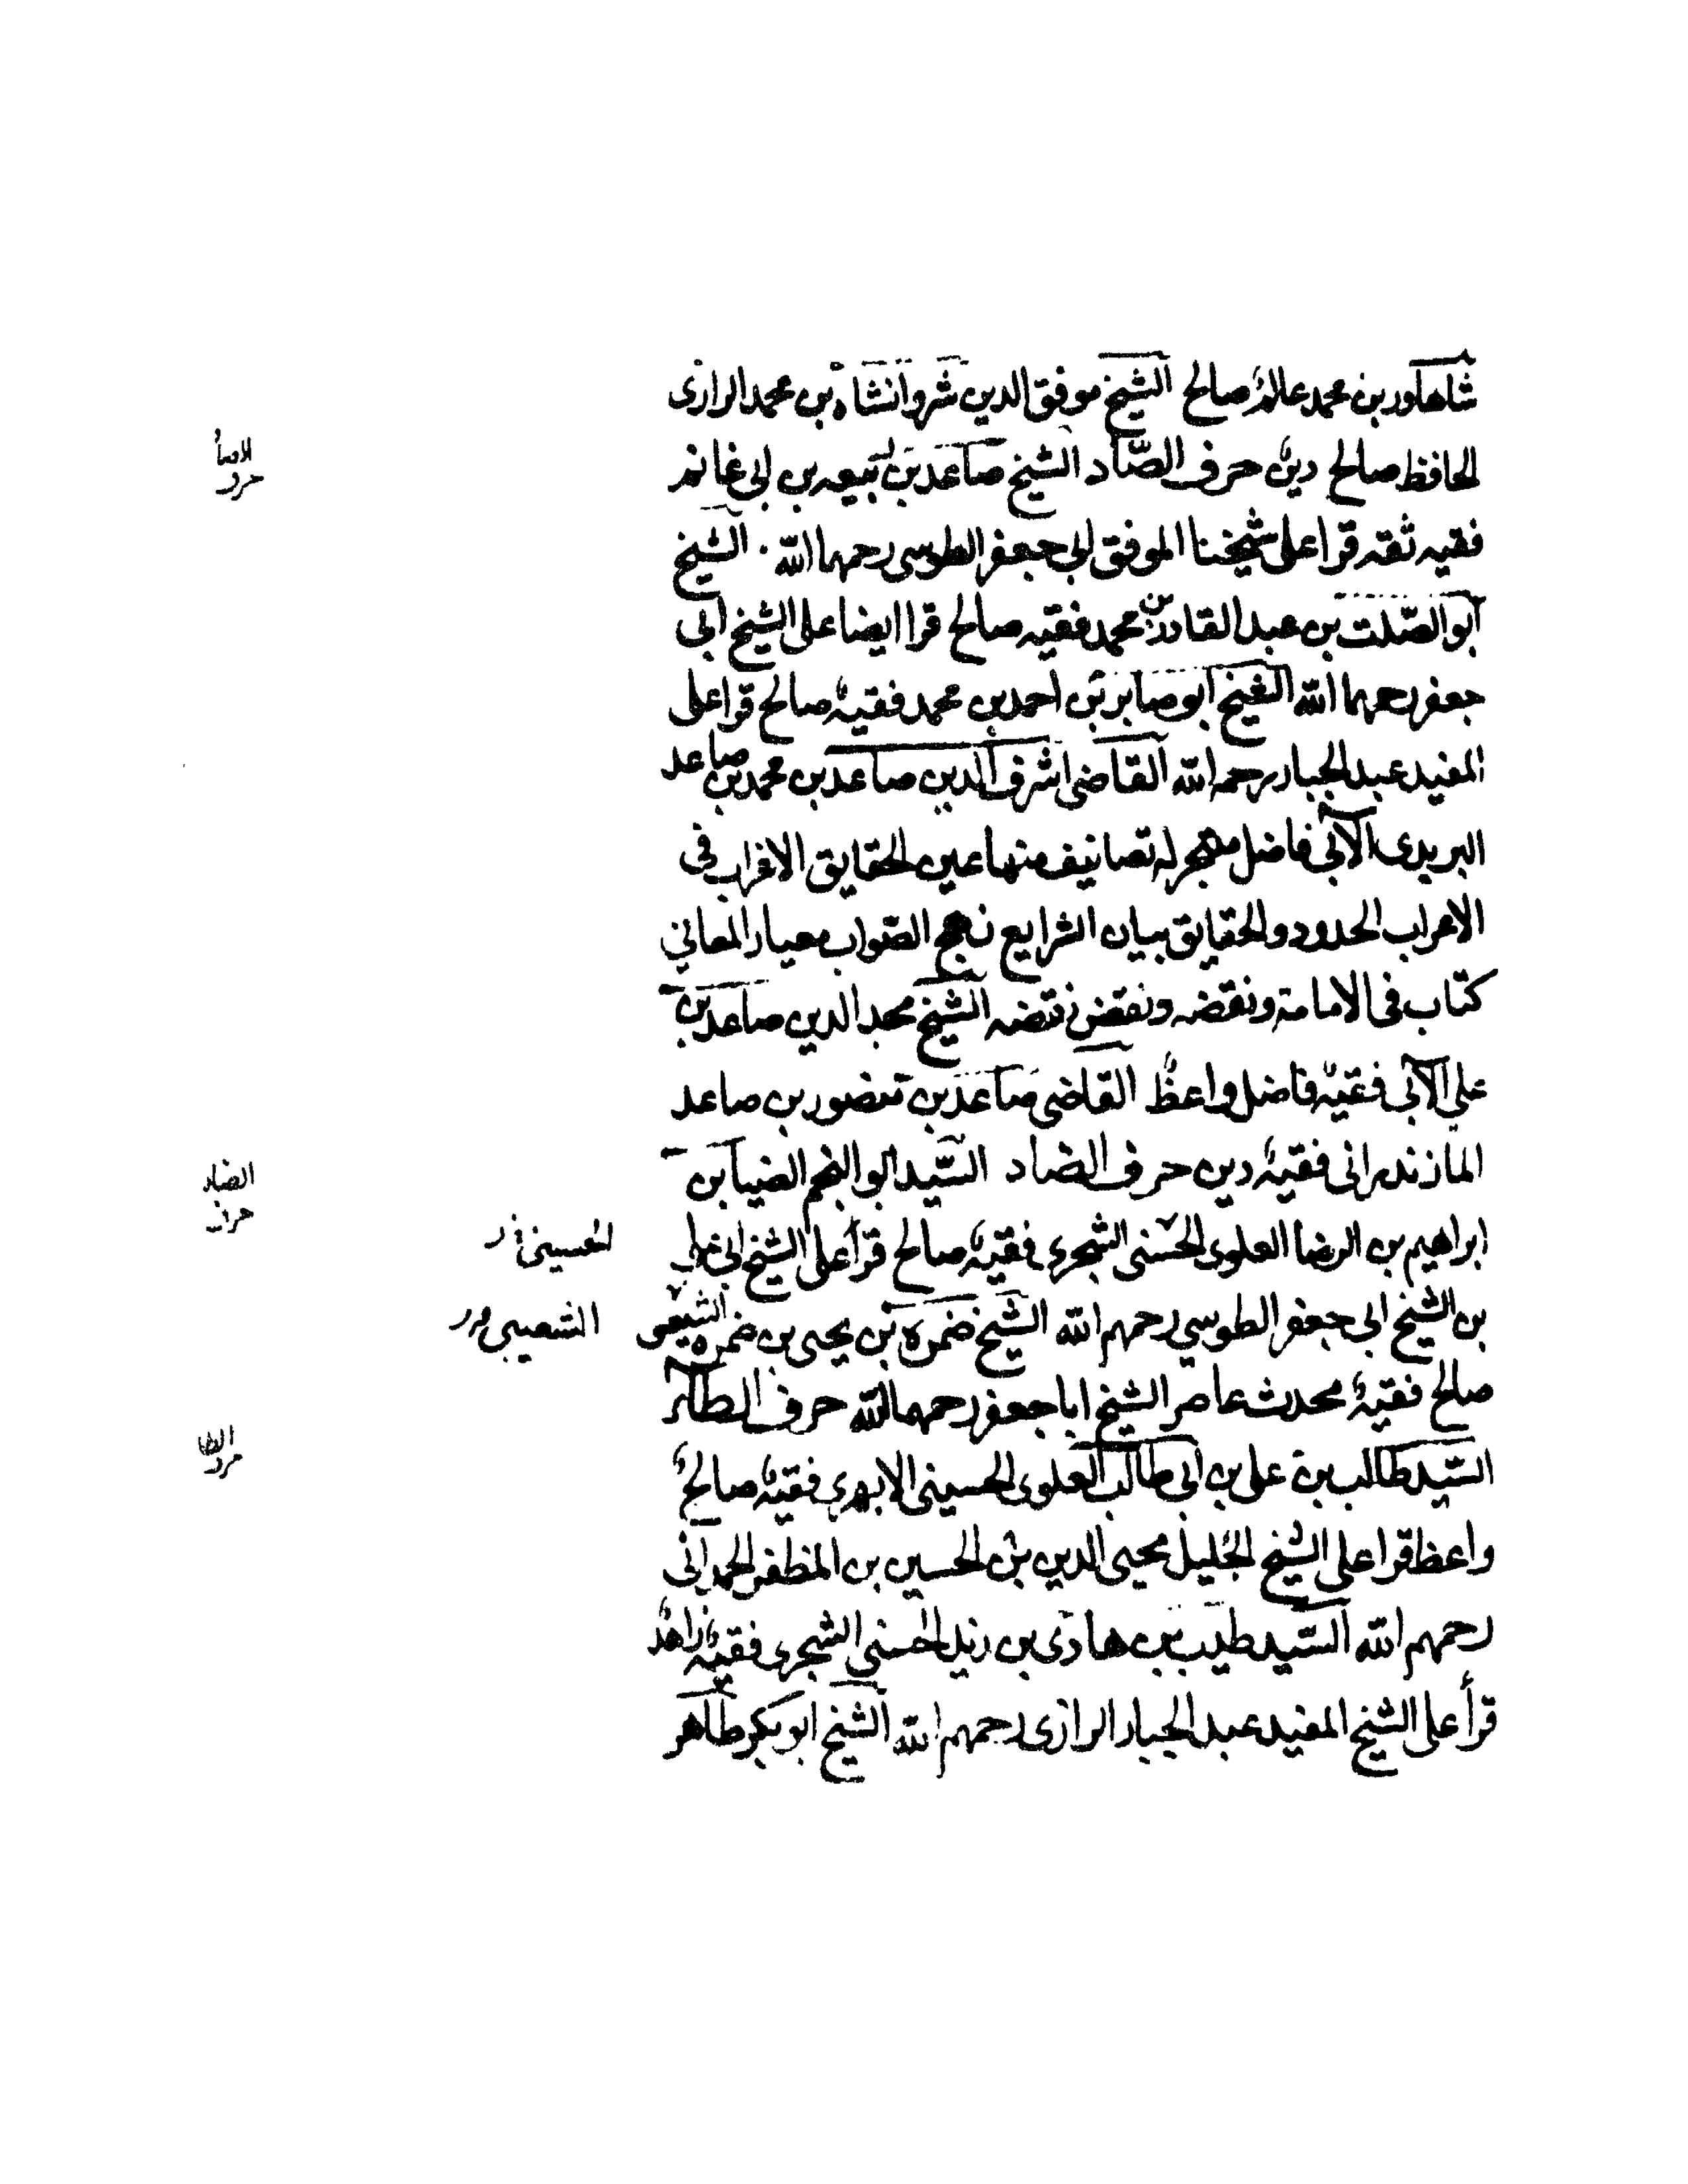 شاهاور بن محمد عالم صالح الشيخ موفق الدين شروانشاه بن محمد الرازى
الحافظ صالح دين حرف الصاد الشيخ صاعد بن ربيعه بن ابى غانم
فقيه ثقه قرا على شيخنا الموفق ابى جعفر الطوسى رحمهما الله . الشيخ
ابو الصلت بن عبد القادر بن محمد فقيه صالح قرا ايضا على الشيخ ابى
جعفر رحمهما الله الشيخ ابو صابر بن احمد بن محمد فقيه صالح قرا على
المفيد عبد الجبار رحمه الله القاضى اشرف الدين صاعد بن محمد بن صاعد
البريدى الآبى فاضل متبحر له تصانيف منها عين الحقايق الاغراب فى
الاعراب الحدود والحقايق بيان الشرايع نهج الصواب معيار المعاني
كتاب فى الامامة ونقضه ونقض نقضه الشيخ مجد الدين صاعد بن
على الآبى فقيه فاضل واعظ القاضى صاعد بن منصور بن صاعد
المازندرانى فقيه دين حرف الضاد السيد ابو النجم الضيا بن
ابراهيم بن الرضا العلوى الحسنى الشجرى فقيه صالح قرأ على الشيخ ابى على
بن الشيخ ابى جعفر الطوسي رحمهم الله الشيخ ضمره بن يحيى بن ضمره الشيعى
صالح فقيه محدث عاصر الشيخ ابا جعفر رحمهما الله حرف الطاء
السيد طالب بن على بن ابى طالب العلوى الحسينى الابهرى فقيه صالح
واعظ قرا على الشيخ الجليل محيى الدين بن الحسين بن المظفر الحمدانى
رحمهم الله السيد طيب بن هادى بن زيد الحسنى الشجرى فقيه زاهد
قرأ على الشيخ المفيد عبد الجبار الرازى رحمهم الله الشيخ ابو بكر طاهر
الضاد
حرف
الحسينى
الشعيبى